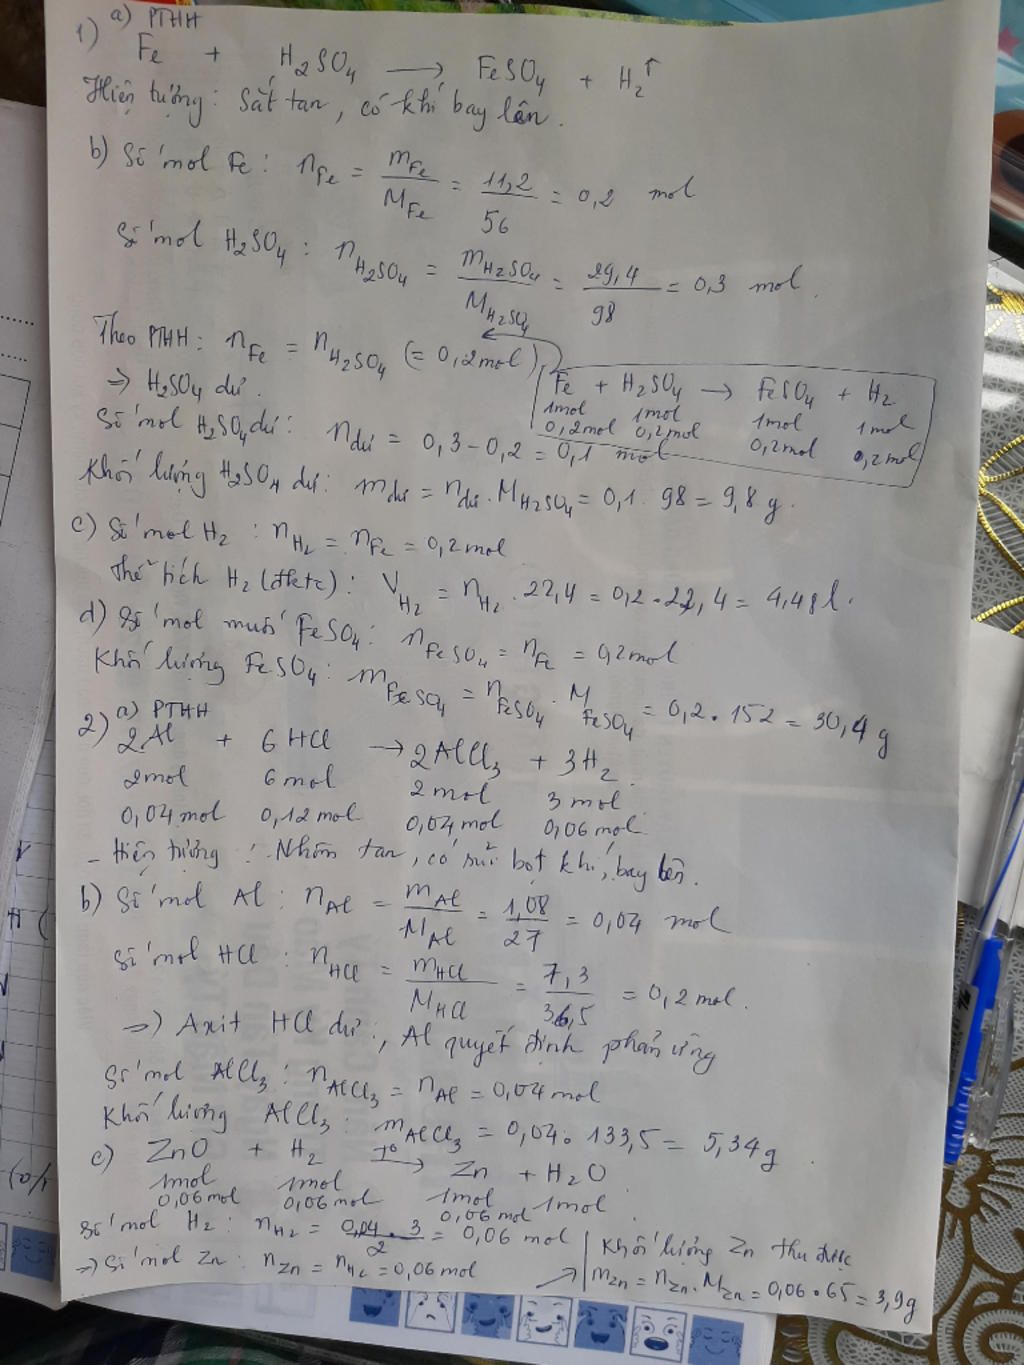 1) a) PTHH
Fe + H2SO4 ⟶ FeSO4 + H2↑
Hiện tượng: Sắt tan, có khí bay lên.
b) Số mol Fe: nFe = mFe/MFe = 11,2/56 = 0,2 mol
Số mol H2SO4: nH2SO4 = mH2SO4/MH2SO4 = 29,4/98 = 0,3 mol.
Theo PTHH: nFe = nH2SO4 (= 0,2mol)
Fe + H2SO4 → FeSO4 + H2
1mol 1mol 1mol 1mol
0,2mol 0,2mol 0,2mol 0,2mol
⇒ H2SO4 dư.
Số mol H2SO4 dư: ndư = 0,3 - 0,2 = 0,1 mol
Khối lượng H2SO4 dư: mdư = ndư . MH2SO4 = 0,1 . 98 = 9,8 g.
c) Số mol H2: nH2 = nFe = 0,2mol
Thể tích H2 (đktc): VH2 = nH2 . 22,4 = 0,2 . 22,4 = 4,48l.
d) Số mol muối FeSO4: nFeSO4 = nFe = 0,2mol
Khối lượng FeSO4: mFeSO4 = nFeSO4 . MFeSO4 = 0,2 . 152 = 30,4 g
2) a) PTHH
2Al + 6HCl → 2AlCl3 + 3H2
2mol 6mol 2mol 3mol
0,04mol 0,12mol 0,04mol 0,06mol
- Hiện tượng: Nhôm tan, có sủi bọt khí, bay lên.
b) Số mol Al: nAl = mAl/MAl = 1,08/27 = 0,04 mol
Số mol HCl: nHCl = mHCl/MHCl = 7,3/36,5 = 0,2 mol.
⇒ Axit HCl dư, Al quyết định phản ứng
Số mol AlCl3: nAlCl3 = nAl = 0,04mol
Khối lượng AlCl3: mAlCl3 = 0,04 . 133,5 = 5,34g.
c) ZnO + H2 —T°→ Zn + H2O
1mol 1mol 1mol 1mol
0,06mol 0,06mol 0,06mol
Số mol H2: nH2 = 0,04 . 3/2 = 0,06 mol
⇒ Số mol Zn: nZn = nH2 = 0,06mol
Khối lượng Zn thu được
mZn = nZn . MZn = 0,06 . 65 = 3,9g